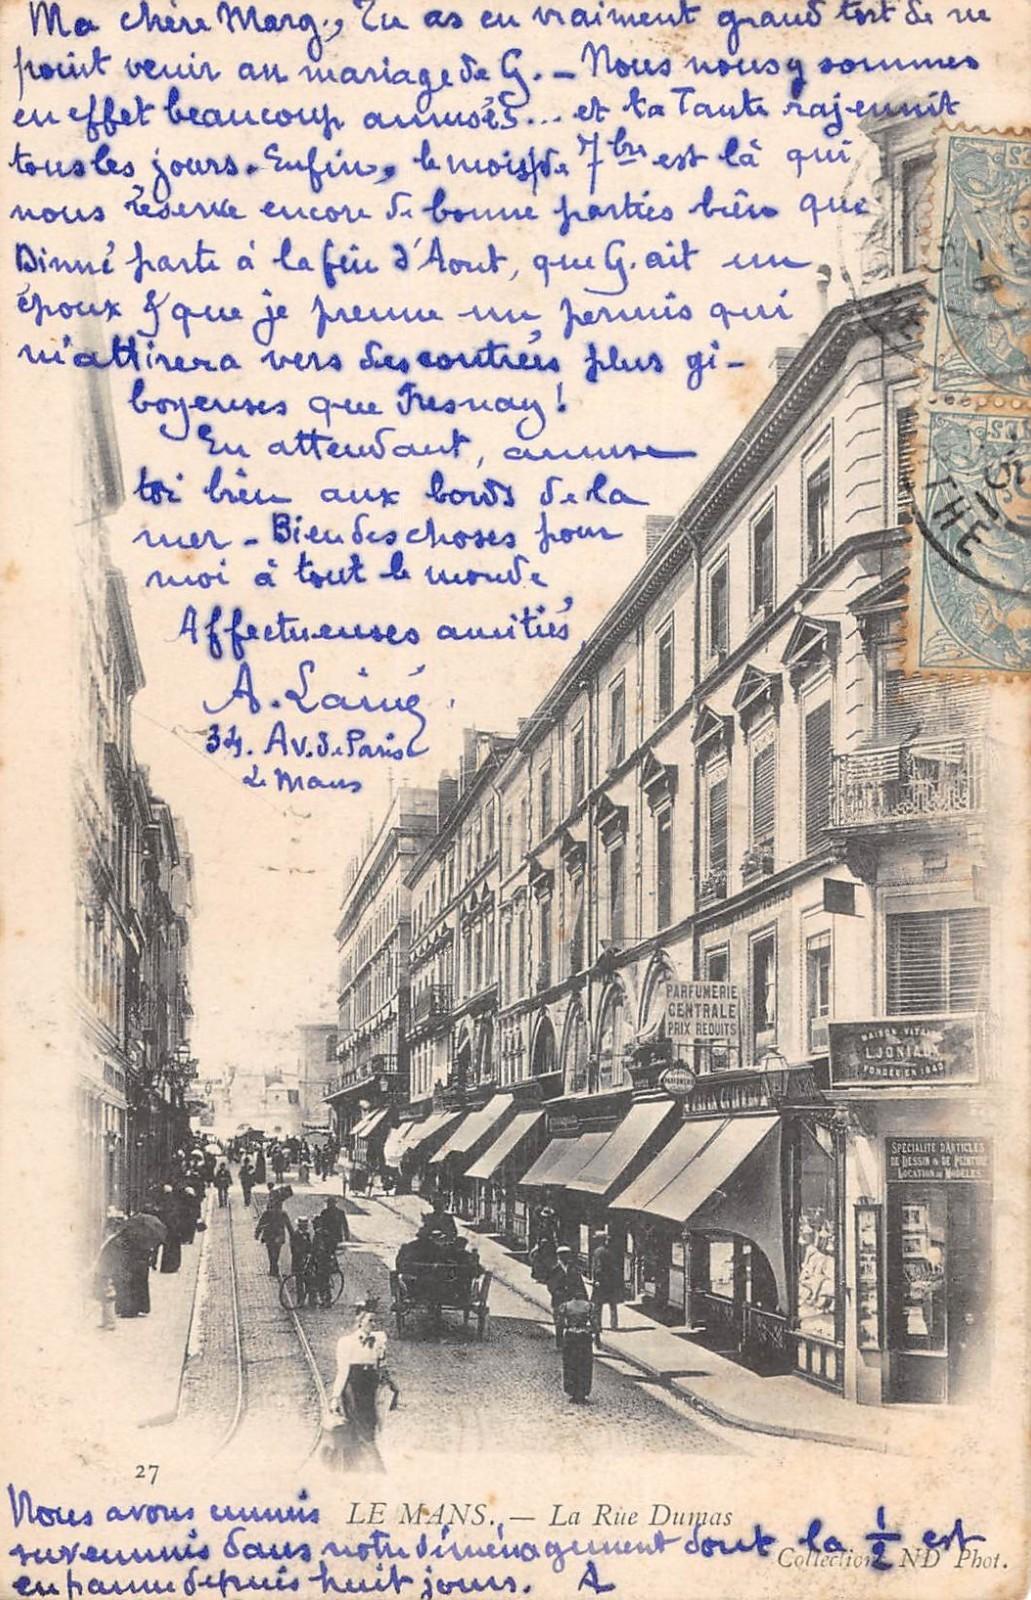 Ma chère Marg., Tu as eu vraiment grand tort de ne
point venir au mariage de G. — Nous nous y sommes
en effet beaucoup amusés... et ta Tante rajeunit
tous les jours. Enfin, le mois de 7bre est là qui
nous réserve encore de bonne parties bien que
parte à la fin d'Août, que G. ait un
époux & que je prenne un permis qui
m'attirera vers des contrées plus gi-
boyeuses que Fresnay!
En attendant, amuse
toi bien aux bords de la
mer — Bien des choses pour
moi à tout le monde
Affectueuses amitiés,
A. Lainé
34. Av. de Paris
Le Mans
PARFUMERIE
CENTRALE
PRIX REDUITS
PARFUMERIE
MAISON VITAL
L. JONIAUX
FONDÉE EN 1840
SPÉCIALITÉ D'ARTICLES
DE DESSIN & DE PEINTURE
LOCATION DE MODÈLES
THE
27
LE MANS. — La Rue Dumas
Collections ND Phot.
Nous avons ennuis
sur ennuis dans notre déménagement dont la 1/2 est
en panne depuis huit jours. A